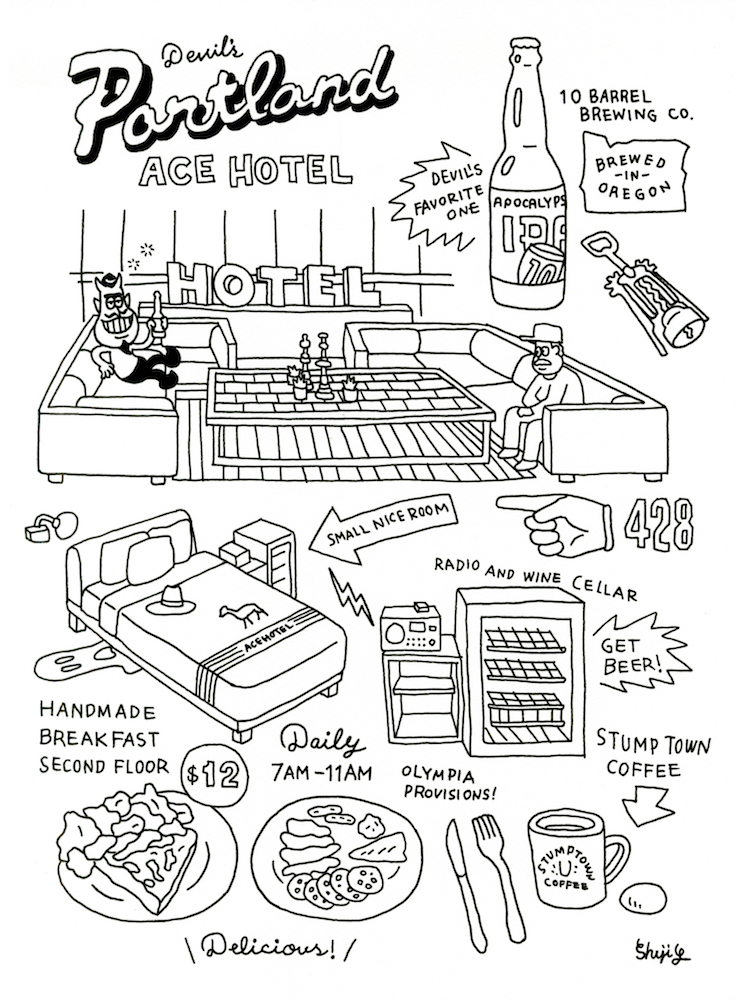 Devil's
Portland
ACE HOTEL
10 BARREL
BREWING CO.
BREWED
-IN-
OREGON
DEVIL'S
FAVORITE
ONE
APOCALYPS
IPA
10
HOTEL
SMALL NICE ROOM
428
RADIO AND WINE CELLAR
ACEHOTEL
GET
BEER!
HANDMADE
BREAKFAST
SECOND FLOOR
$12
Daily
7AM-11AM
OLYMPIA
PROVISIONS!
STUMP TOWN
COFFEE
STUMPTOWN
COFFEE
\ Delicious! /